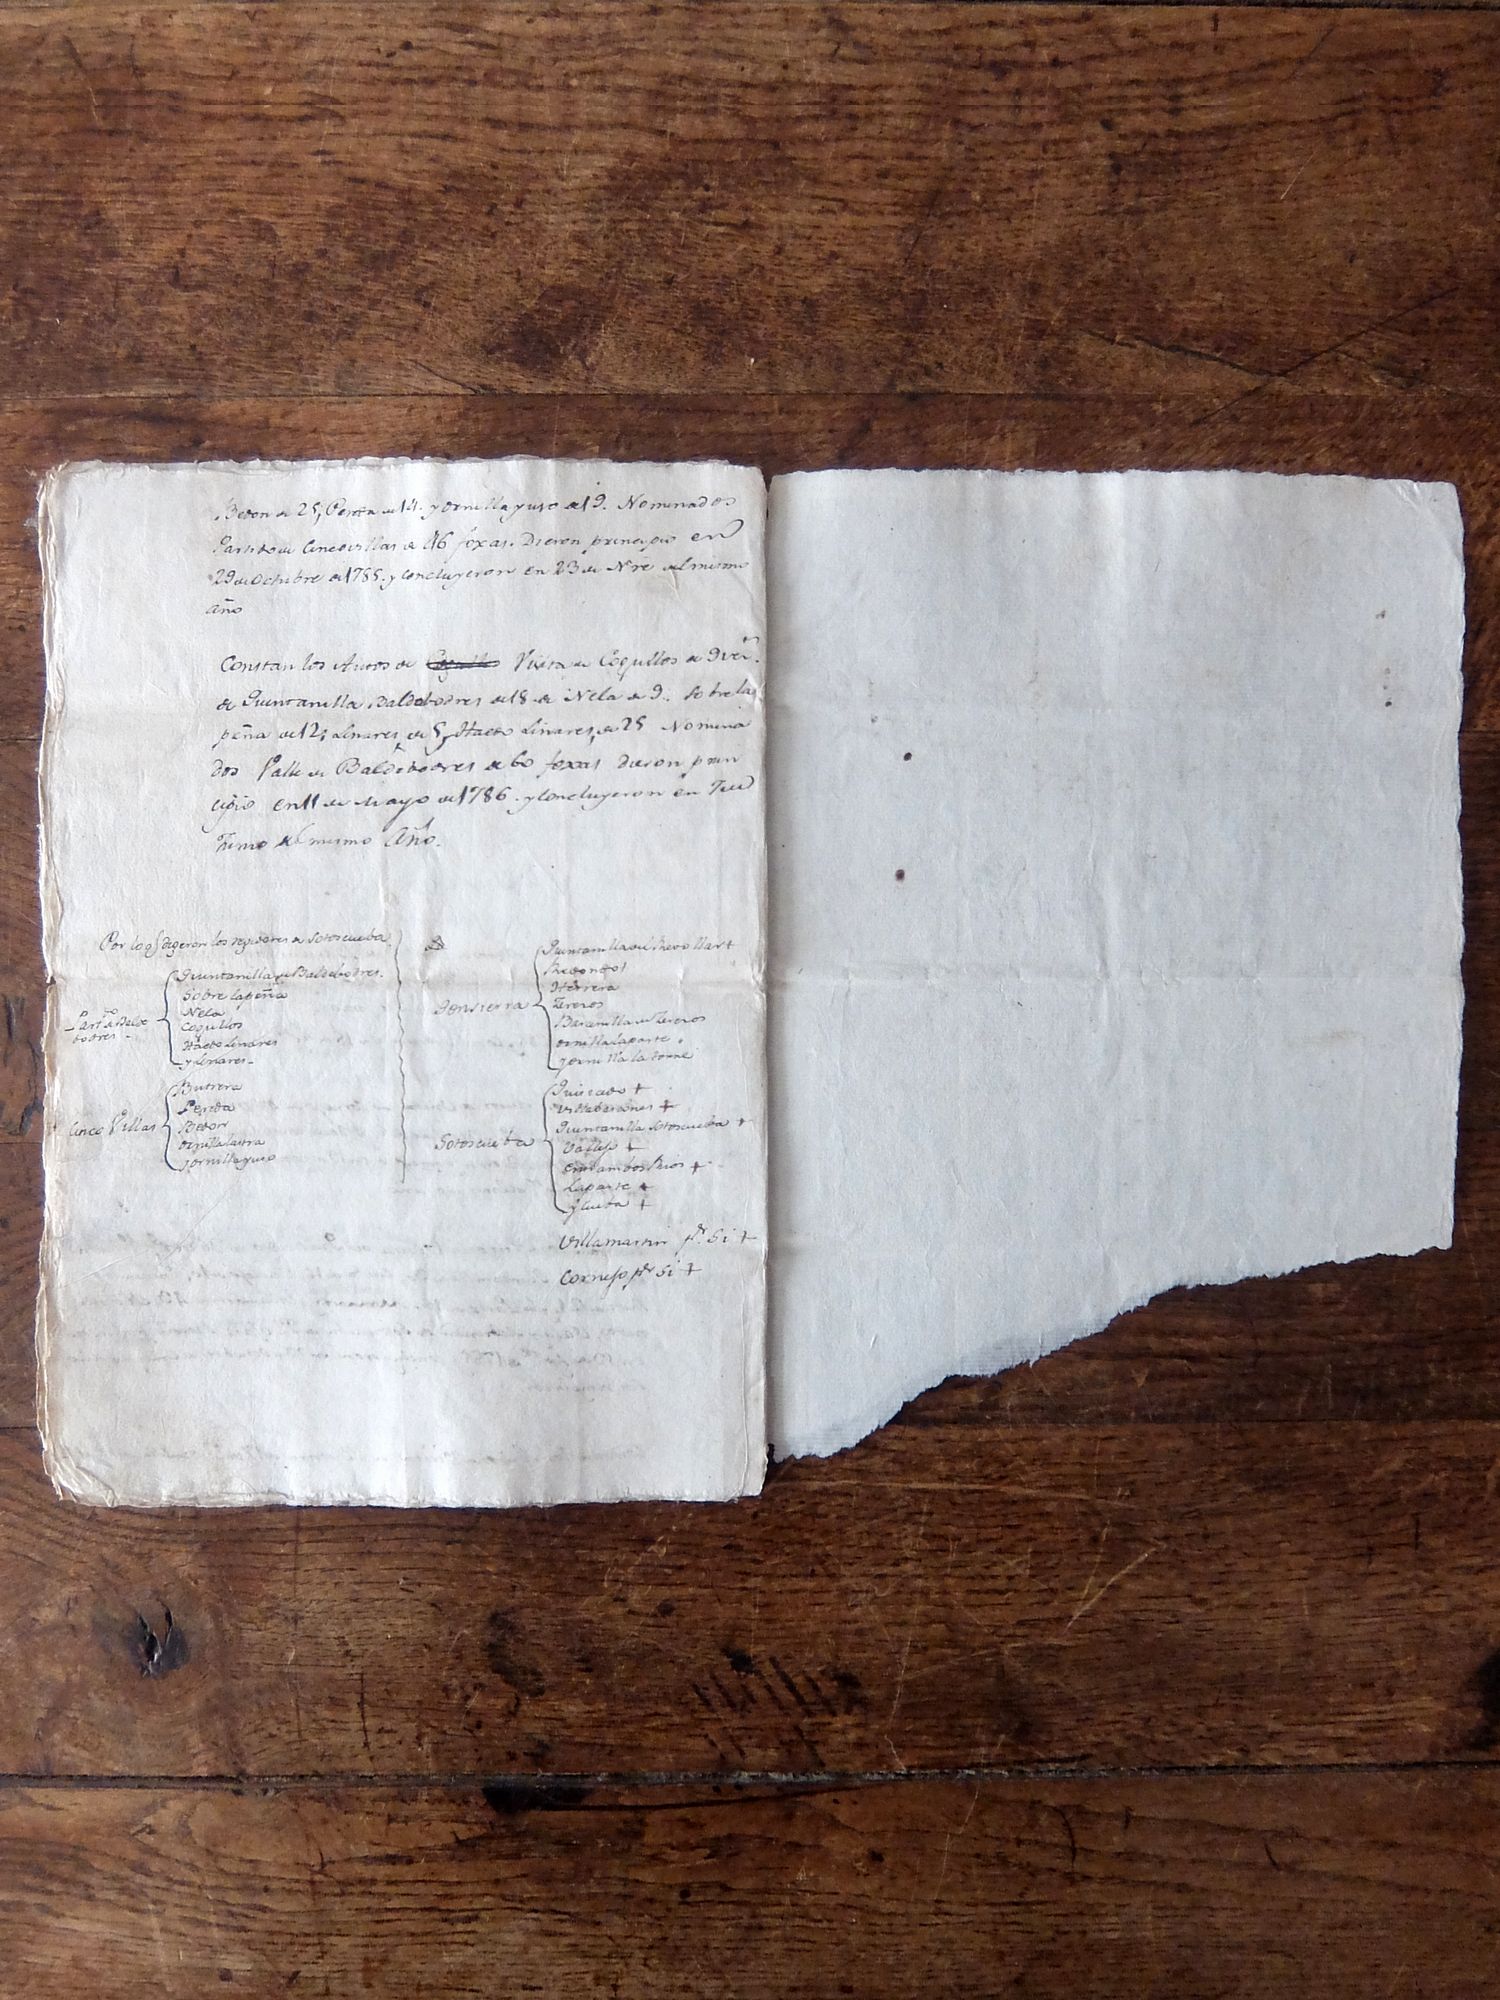 Bedon de 25, Pereda de 14. y Ornilla yuso de 19. Nominados
Partido de Cinco villas de 46 foxas. Dieron principio en
29 de Octubre de 1785. y Concluyeron en 23 de Nre del mismo
año
Constan los Autos de Visita de Cogullos de
de Quintanilla Baldebodres de 18. de Nela de 9. Sobre la
peña de 12, Linares de 5, Haedo Linares, de 25 Nomina
dos Valle de Baldebodres de 60 foxas dieron prin
cipio en 11 de Mayo de 1786. y Concluyeron en
del mismo Año.
Por lo q digeron los regidores de Sotoscueba
Part.do de Balde
bodres
Quintanilla de Baldebodres.
Sobre la peña
Nela
Cogullos
Haedo Linares
y Linares
Cinco Villas
Butrera
Pereda
Bedon
Ornilla latra
y ornilla yuso
Sonsierra
Quintanilla del Rebollar +
Redondo
Herrera
Zereros
Barcenilla de Zereros
ornilla la parte
y ornilla la torre
Sotoscueba
Quisicedo +
Villabascones +
Quintanilla Sotoscueba +
Vallejo +
Entrambos Rios +
La parte +
y Cueba +
Villamartin pr. Si +
Cornejo pr Si +